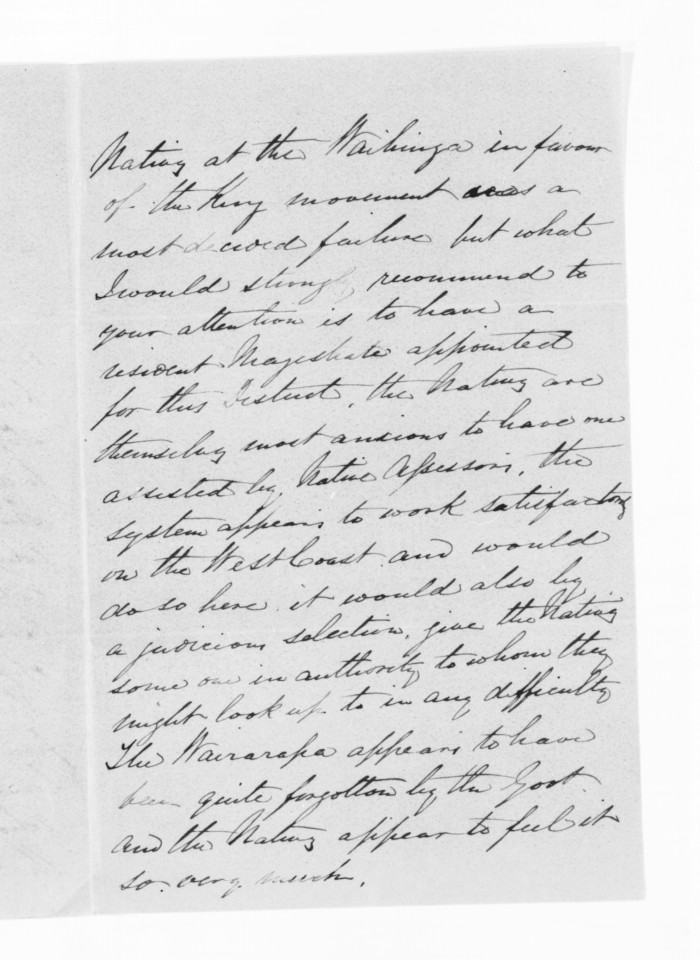 Natives at the Waihinga in favour
of the King movement was a
most decided failure but what
I would strongly recommend to
your attention is to have a
resident Magistrate appointed
for this District, the Natives are
themselves most anxious to have one
assisted by Native Assessors, the
system appears to work satisfactory
on the West Coast and would
do so here. it would also by
a judicious selection, give the Natives
some one in authority to whom they
might look up to in any difficulty
The Wairarapa appears to have
been quite forgotton by the Govt.
and the Natives appear to feel it
so very much.